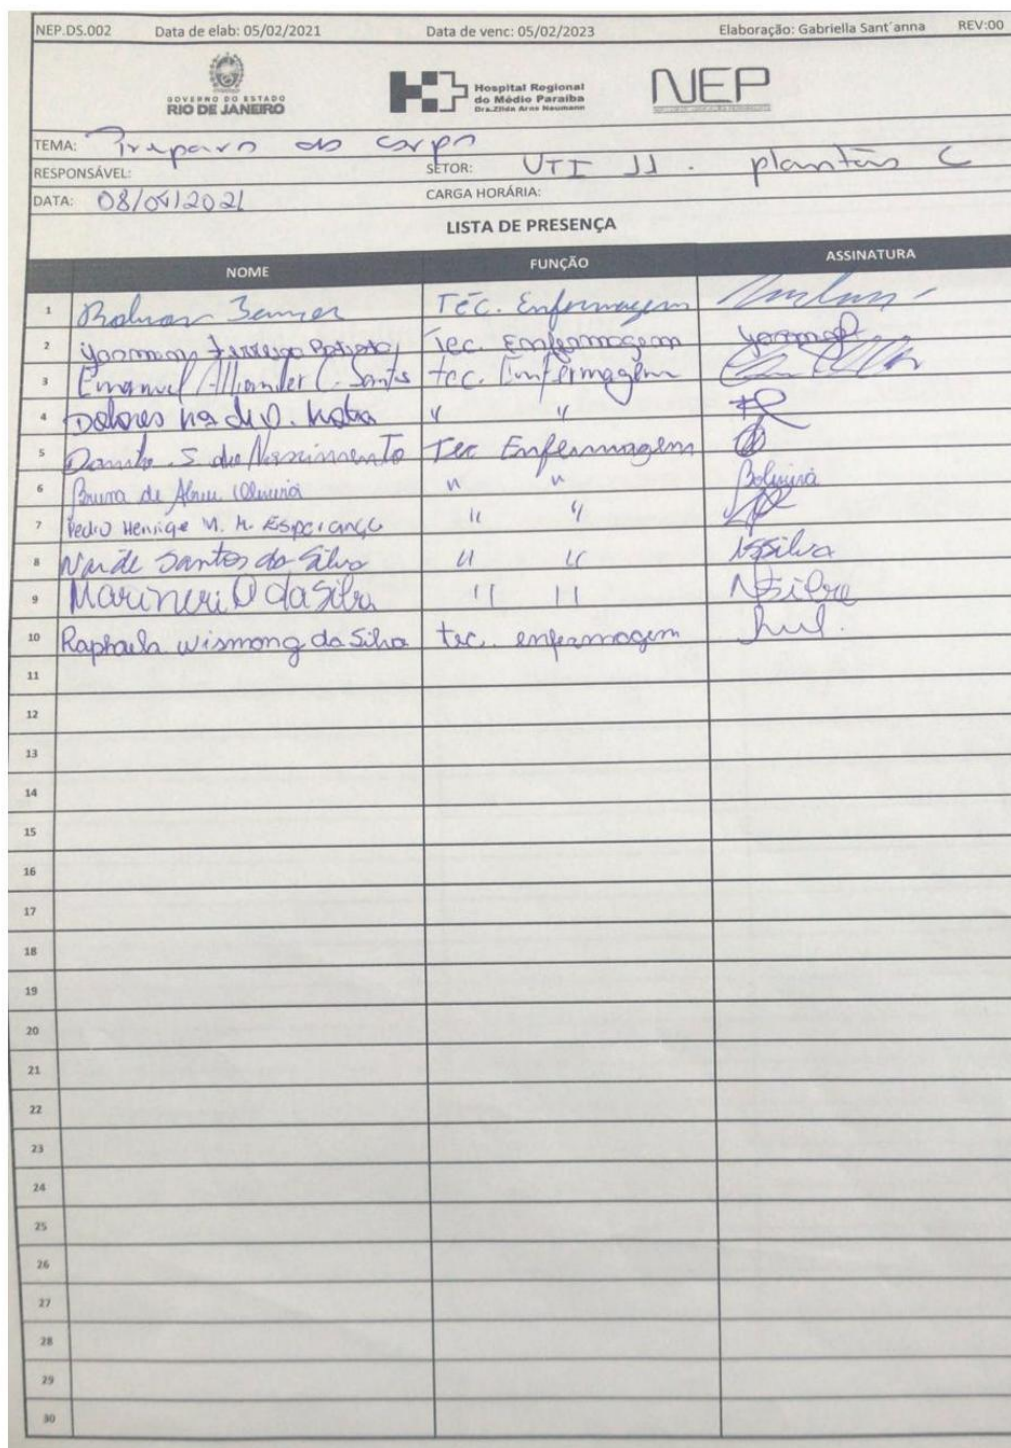 NEP.DS.002 Data de elab: 05/02/2021 Data de venc: 05/02/2023 Elaboração: Gabriella Sant´anna REV:00
GOVERNO DO ESTADO
RIO DE JANEIRO
Hospital Regional
do Médio Paraíba
Dra.Zilda Arns Neumann
NEP
TEMA: Preparo do corpo
RESPONSÁVEL: SETOR: UTI II . plantão C
DATA: 08/04/2021 CARGA HORÁRIA:
LISTA DE PRESENÇA
NOME FUNÇÃO ASSINATURA
1 Téc. Enfermagem
2 Yasmim Ferreira Batista Tec. Enfermagem
3 Emanuel C. Santos tec. Enfermagem
4 Dolores de O. " "
5 Danilo S. do Nascimento Tec Enfermagem
6 Bruna de Abreu Oliveira " " Boliveira
7 Pedro Henrique M. M. Esperança " "
8 Santos da Silva " " NSSilva
9 Marineri O da Silva " "
10 Raphaela Wismong da Silva tec. enfermagem
11
12
13
14
15
16
17
18
19
20
21
22
23
24
25
26
27
28
29
30